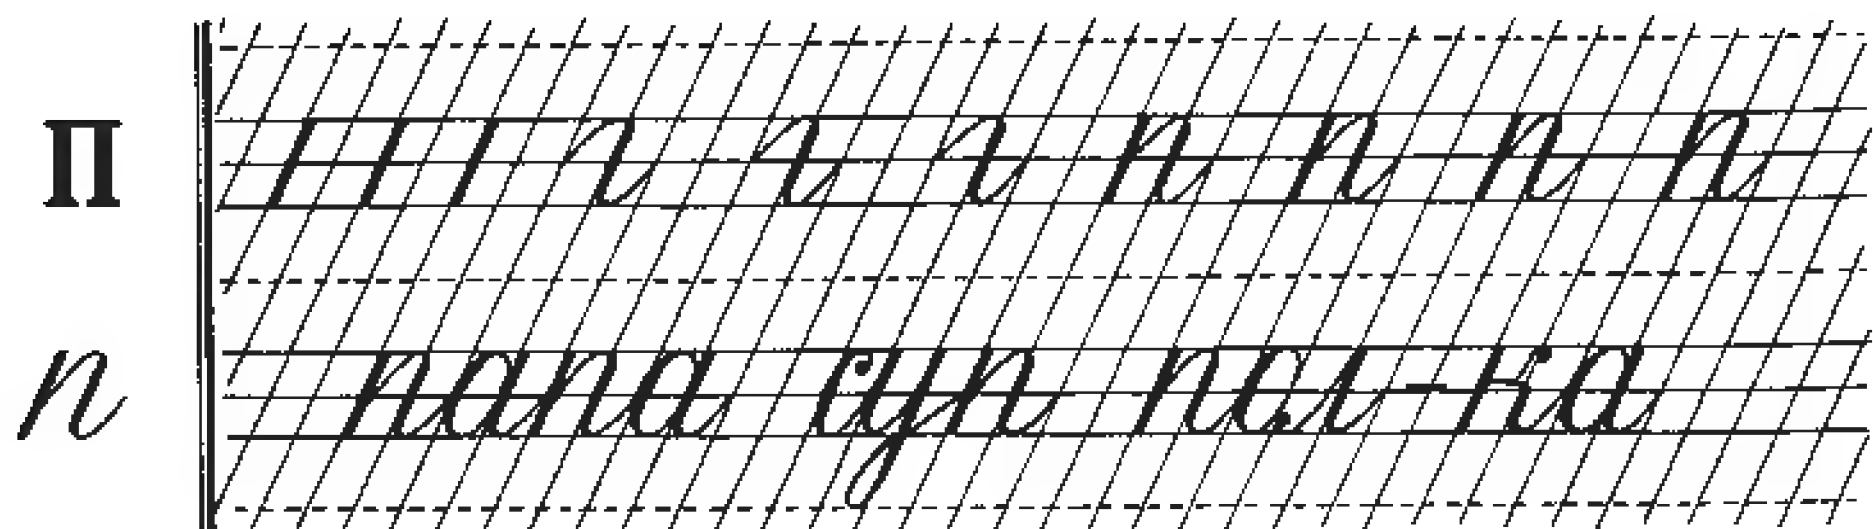 п п п п п
п папа суп пал-ка